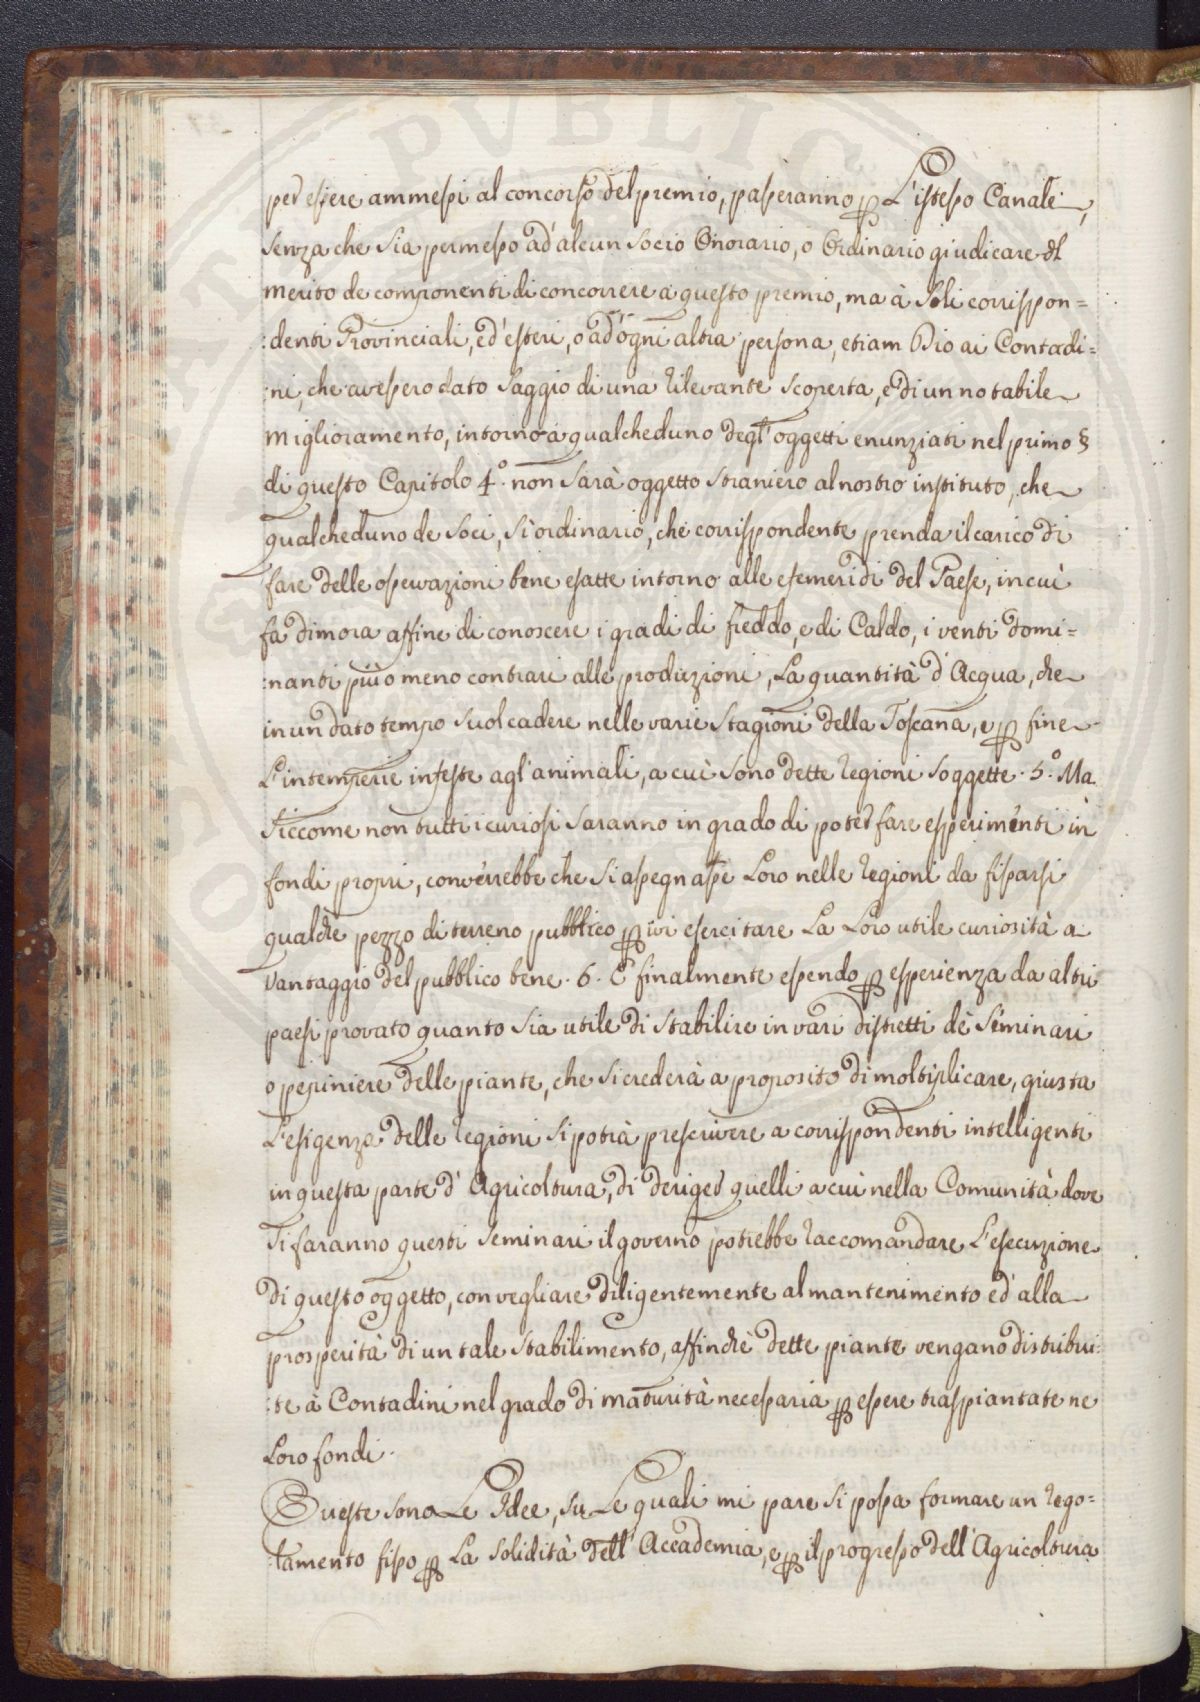 per essere ammessi al concorso del premio, passeranno ꝑ L'istesso Canale,
senza che sia permesso ad'alcun Socio Onorario, o Ordinario giudicare del
merito de componenti di concorrere a questo premio, ma à soli corrispon=
:denti Provinciali, ed'esteri, o ad'ogni altra persona, etiam Dio ai Contadi=
:ni, che avessero dato saggio di una rilevante scoperta, e di un notabile
miglioramento, intorno a qualcheduno degl'oggetti enunziati nel primo §
di questo Capitolo 4.° non sarà oggetto straniero al nostro instituto, che
qualcheduno de Soci, sì ordinario, che corrispondente prenda il carico di
fare delle osservazioni bene esatte intorno alle efemeridi del Paese, in cui
fà dimora affine di conoscere i gradi di freddo, e di Caldo, i venti domi=
:nanti più o meno contrari alle produzioni, La quantità d'Acqua, che
in un dato tempo suol cadere nelle varie stagioni della Toscana, e ꝑ fine
L'intemperie infeste agl'animali, a cui sono dette regioni soggette. 5.° Ma
siccome non tutti i curiosi saranno in grado di poter fare esperimenti in
fondi propri, converrebbe che si assegnasse Loro nelle regioni da fissarsi
qualche pezzo di terreno pubblico ꝑ ivi esercitare La Loro utile curiosità a
vantaggio del pubblico bene. 6. E finalmente essendo ꝑ esperienza da altri
paesi provato quanto sia utile di stabilire in vari distretti de Seminari
o pepiniere delle piante, che si crederà a proposito di moltiplicare, giusta
L'esigenza delle regioni si potrà prescrivere a corrispondenti intelligenti
in questa parte d'Agricoltura, di deriger quelli a cui nella Comunità dove
si faranno questi seminari il governo potrebbe raccomandare L'esecuzione
di questo oggetto, con vegliare diligentemente al mantenimento ed'alla
prosperità di un tale stabilimento, affinchè dette piante vengano distribui:
:te à Contadini nel grado di maturità necessaria ꝑ essere traspiantate ne
Loro fondi.
Queste sono Le Idee, su Le quali mi pare si possa formare un rego=
lamento fisso ꝑ La solidità dell'Accademia, e ꝑ il progresso dell'Agricoltura